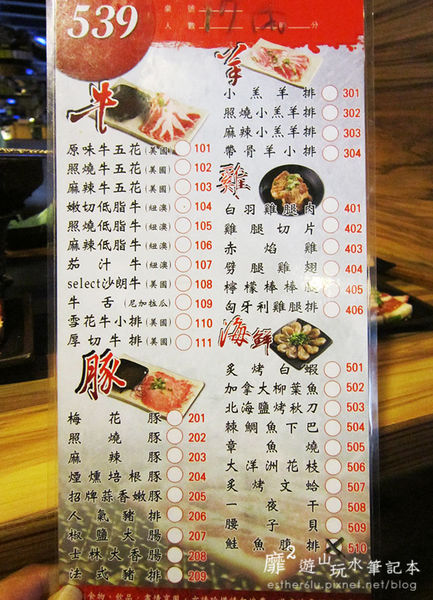 539
桌號
人數 分
牛
原味牛五花(美國) 101
照燒牛五花(美國) 102
麻辣牛五花(美國) 103
嫩切低脂牛(紐澳) 104
照燒低脂牛(紐澳) 105
麻辣低脂牛(紐澳) 106
茄汁牛(紐澳) 107
select沙朗牛(美國) 108
牛舌(尼加拉瓜) 109
雪花牛小排(美國) 110
厚切牛排(美國) 111
豚
梅花豚 201
照燒豚 202
麻辣豚 203
煙燻培根豚 204
招牌蒜香嫩豚 205
人氣豬排 206
椒鹽大腸 207
士林大香腸 208
法式豬排 209
羊
小羔羊排 301
照燒小羔羊排 302
麻辣小羔羊排 303
帶骨羊小排 304
雞
白羽雞腿肉 401
雞腿切片 402
赤焰雞 403
劈腿雞翅 404
檸檬棒棒腿 405
匈牙利雞腿排 406
海鮮
炙烤白蝦 501
加拿大柳葉魚 502
北海鹽烤秋刀 503
棘鯛魚下巴 504
章魚燒 505
大洋洲花枝 506
炙烤文蛤 507
一夜干 508
腰子貝 509
鮭魚腹排 510
靡²遊山玩水筆記本
estherslu.pixnet.net/blog